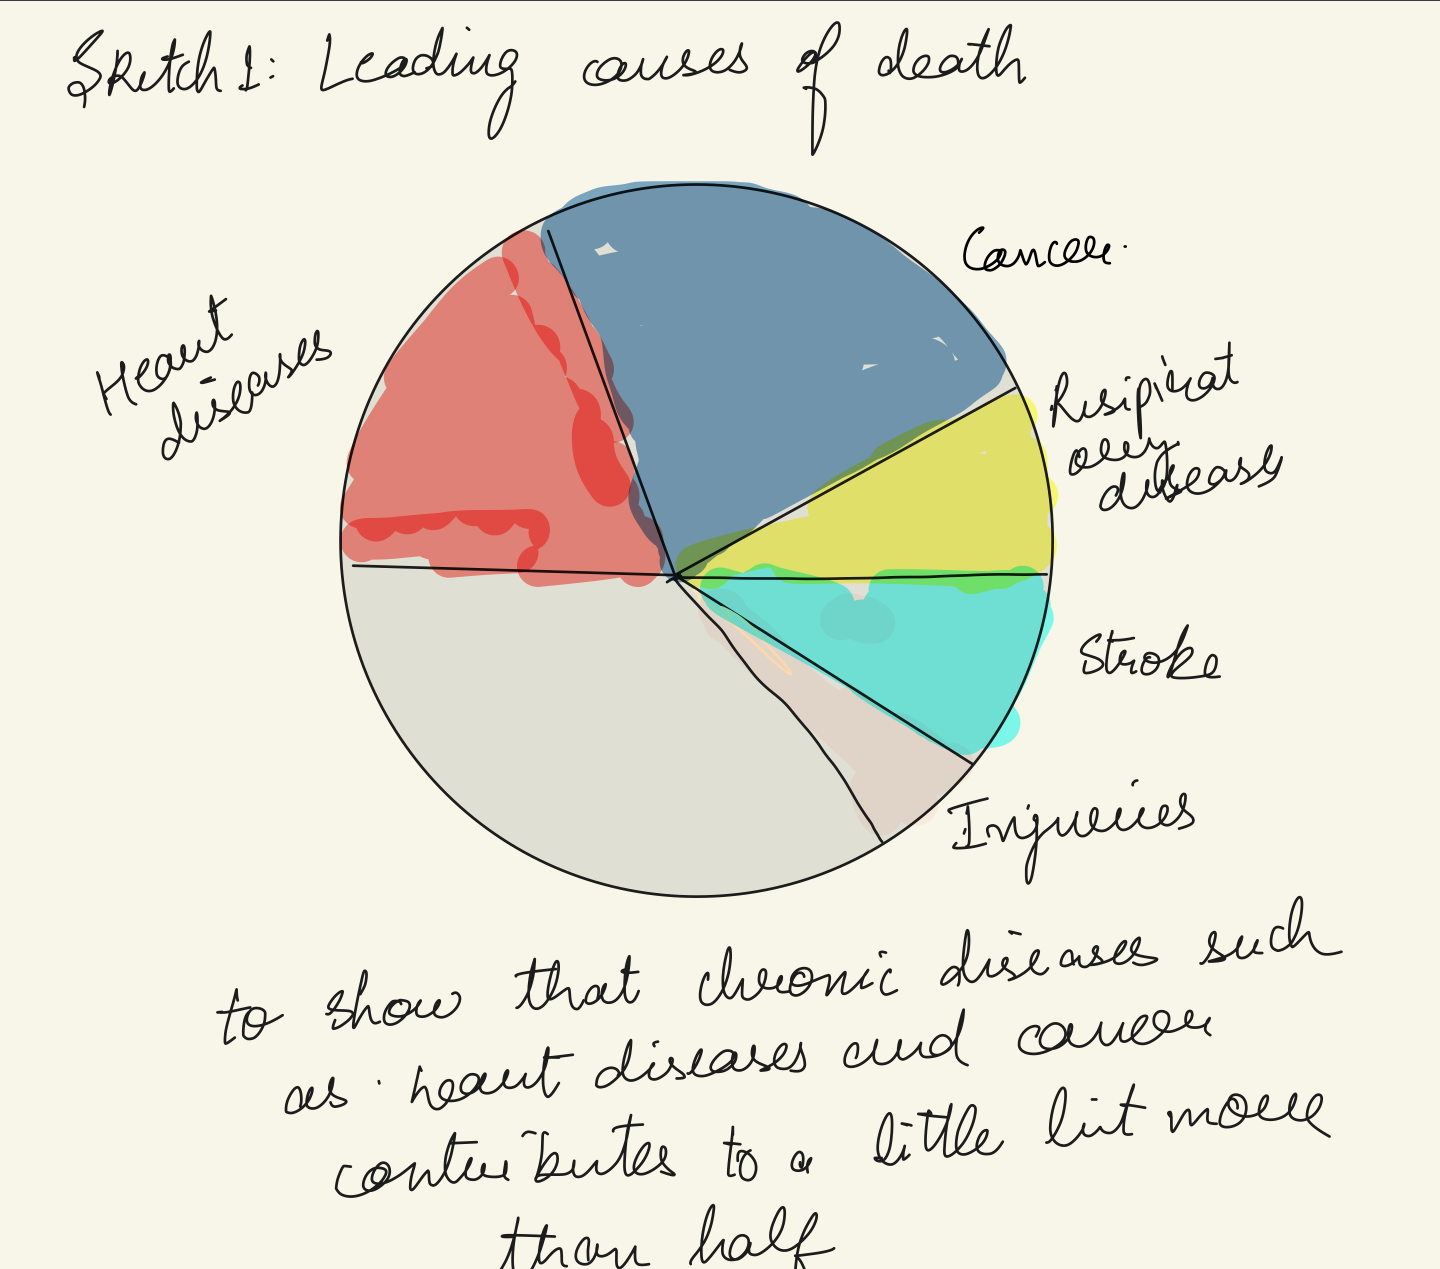 Sketch 1: Leading causes of death
Cancer.
Heart
diseases
Resipirat
ory
diseases
Stroke
Injuries
to show that chronic diseases such
as heart diseases and cancer
contributes to a little bit more
than half